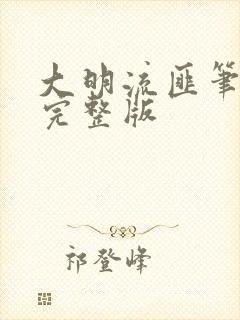 大明流匪筆
完整版
祁登峰